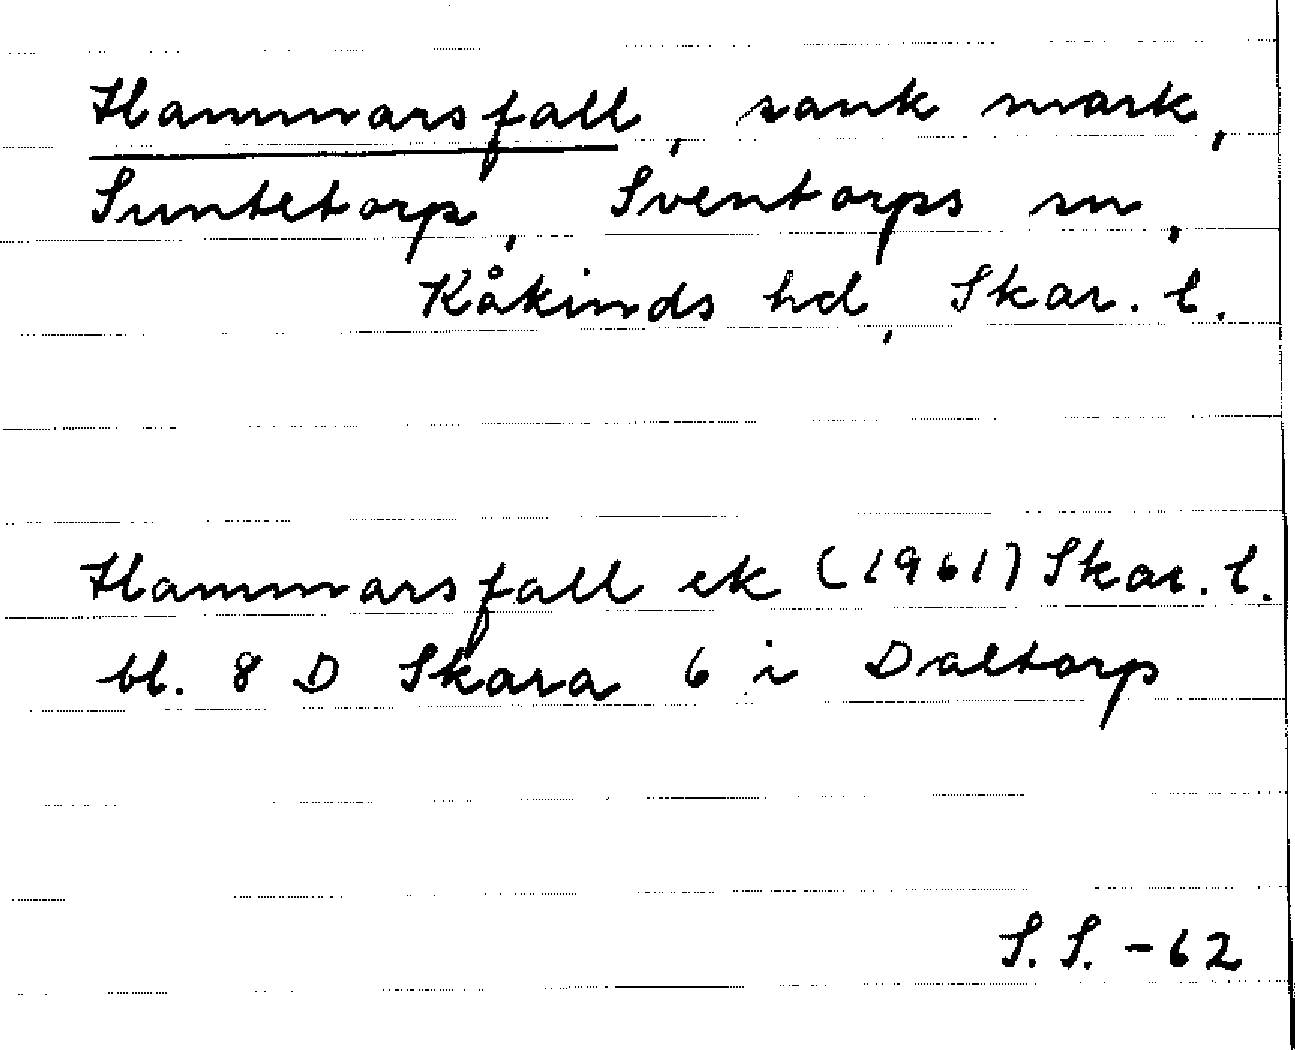 Hammarsfall, sank mark,
Suntetorp, Sventorps sn,
Kåkinds hd, Skar. l.
Hammarsfall ek (1961) Skar. l.
bl. 8 D Skara 6 i Daltorp
S. S. -62